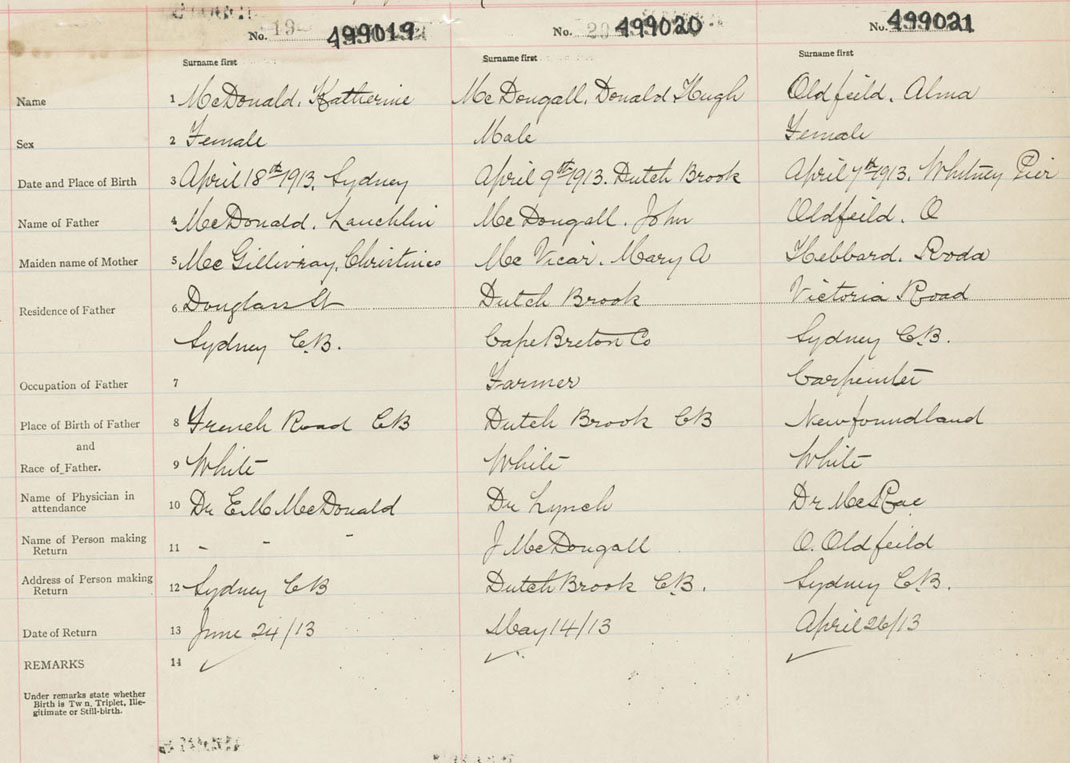 No. 19 499019 No. 20 499020 No. 499021
Surname first Surname first Surname first
Name 1 McDonald, Katherine McDougall, Donald Hugh Oldfeild, Alma
Sex 2 Female Male Female
Date and Place of Birth 3 April 18th 1913, Sydney April 9th 1913. Dutch Brook April 7th 1913, Whitney Pier
Name of Father 4 McDonald, Lauchlin McDougall, John Oldfeild, O
Maiden name of Mother 5 McGillivray, Christine McVicar, Mary A Hebbard, Roda
Residence of Father 6 Douglas St Dutch Brook Victoria Road
Sydney C.B. Cape Breton Co Sydney C.B.
Occupation of Father 7 Farmer Carpenter
Place of Birth of Father 8 French Road CB Dutch Brook CB Newfoundland
and
Race of Father. 9 White White White
Name of Physician in
attendance 10 Dr E.M. McDonald Dr Lynch Dr McRae
Name of Person making
Return 11 - - - J McDougall O. Oldfeild
Address of Person making
Return 12 Sydney CB Dutch Brook C.B. Sydney C.B.
Date of Return 13 June 24/13 May 14/13 April 26/13
REMARKS 14
Under remarks state whether
Birth is Tw n, Triplet, Ille-
gitimate or Still-birth.